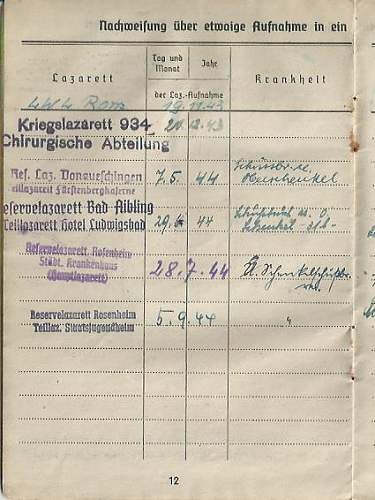 Nachweisung über etwaige Aufnahme in ein
Lazarett
Tag und Monat
Jahr
der Laz.-Aufnahme
Krankheit
Rom 19.11.43
Kriegslazarett 934
Chirurgische Abteilung
43
Res. Laz. Donaueschingen
Teillazarett Fürstenbergkaserne
7.5. 44
Oberschenkel
Reservelazarett Bad Aibling
Teillazarett Hotel Ludwigsbad
29.6. 44
Reservelazarett Rosenheim
Städt. Krankenhaus
(Hauptlazarett)
28.7.44
Reservelazarett Rosenheim
Teillaz. Staatsjugendheim
5.9.44
"
12